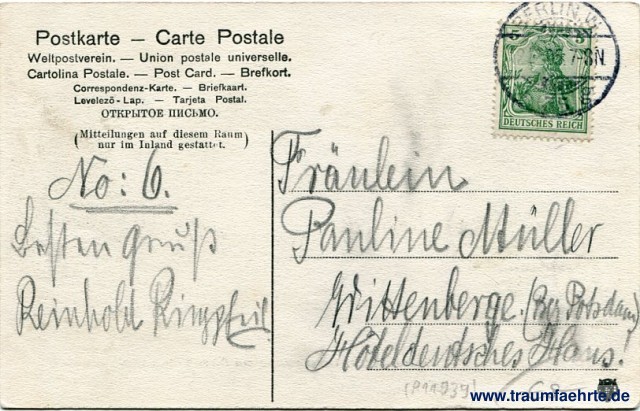 Postkarte — Carte Postale
Weltpostverein. — Union postale universelle.
Cartolina Postale. — Post Card. — Brefkort.
Correspondenz-Karte. — Briefkaart.
Levelező-Lap. — Tarjeta Postal.
ОТКРЫТОЕ ПИСЬМО.
(Mitteilungen auf diesem Raum
nur im Inland gestattet.)
BERLIN W.
5 5
DEUTSCHES REICH
No: 6.
Besten Gruß
Reinhold Ringpfeil
Fräulein
Pauline Müller
Wittenberge. (Bez Potsdam)
Hôtel deutsches Haus.
www.traumfaehrte.de